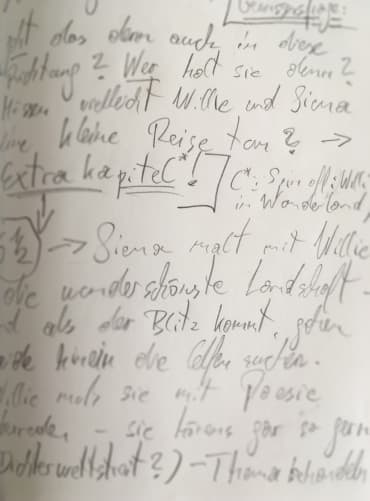 geht das denn auch in diese
Richtung? Wer holt sie denn?
Müssen vielleicht Willie und Siena
eine kleine Reise tun? →
Extrakapitel*!
(*: Spin off: Willie
in Wonderland,
5 1/2 → Siena malt mit Willie
die wunderschönste Landschaft -
und als der Blitz kommt, gehen
hinein die Elfen suchen.
Willie muss sie mit Poesie
- sie hörens gar so gern
Dichterwettstreit?) - Thema behandeln